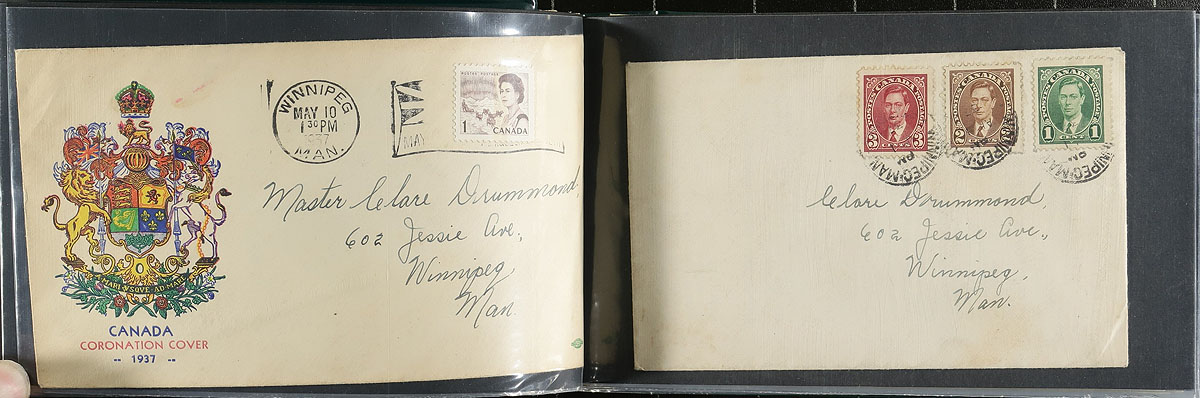 WINNIPEG
MAY 10
1 30 PM
1937
MAN.
MAY
POSTES POSTAGE
1 CANADA
Master Clare Drummond,
602 Jessie Ave.,
Winnipeg
Man.
A MARI VSQVE AD MARE
CANADA
CORONATION COVER
1937
CANADA
POSTES POSTAGE
3 CENTS 3
CANADA
POSTES POSTAGE
2 CENTS 2
CANADA
POSTES POSTAGE
1 CENT 1
WINNIPEG MAN
PM
WINNIPEG MAN
WINNIPEG MAN
PM
Clare Drummond,
602 Jessie Ave.,
Winnipeg,
Man.